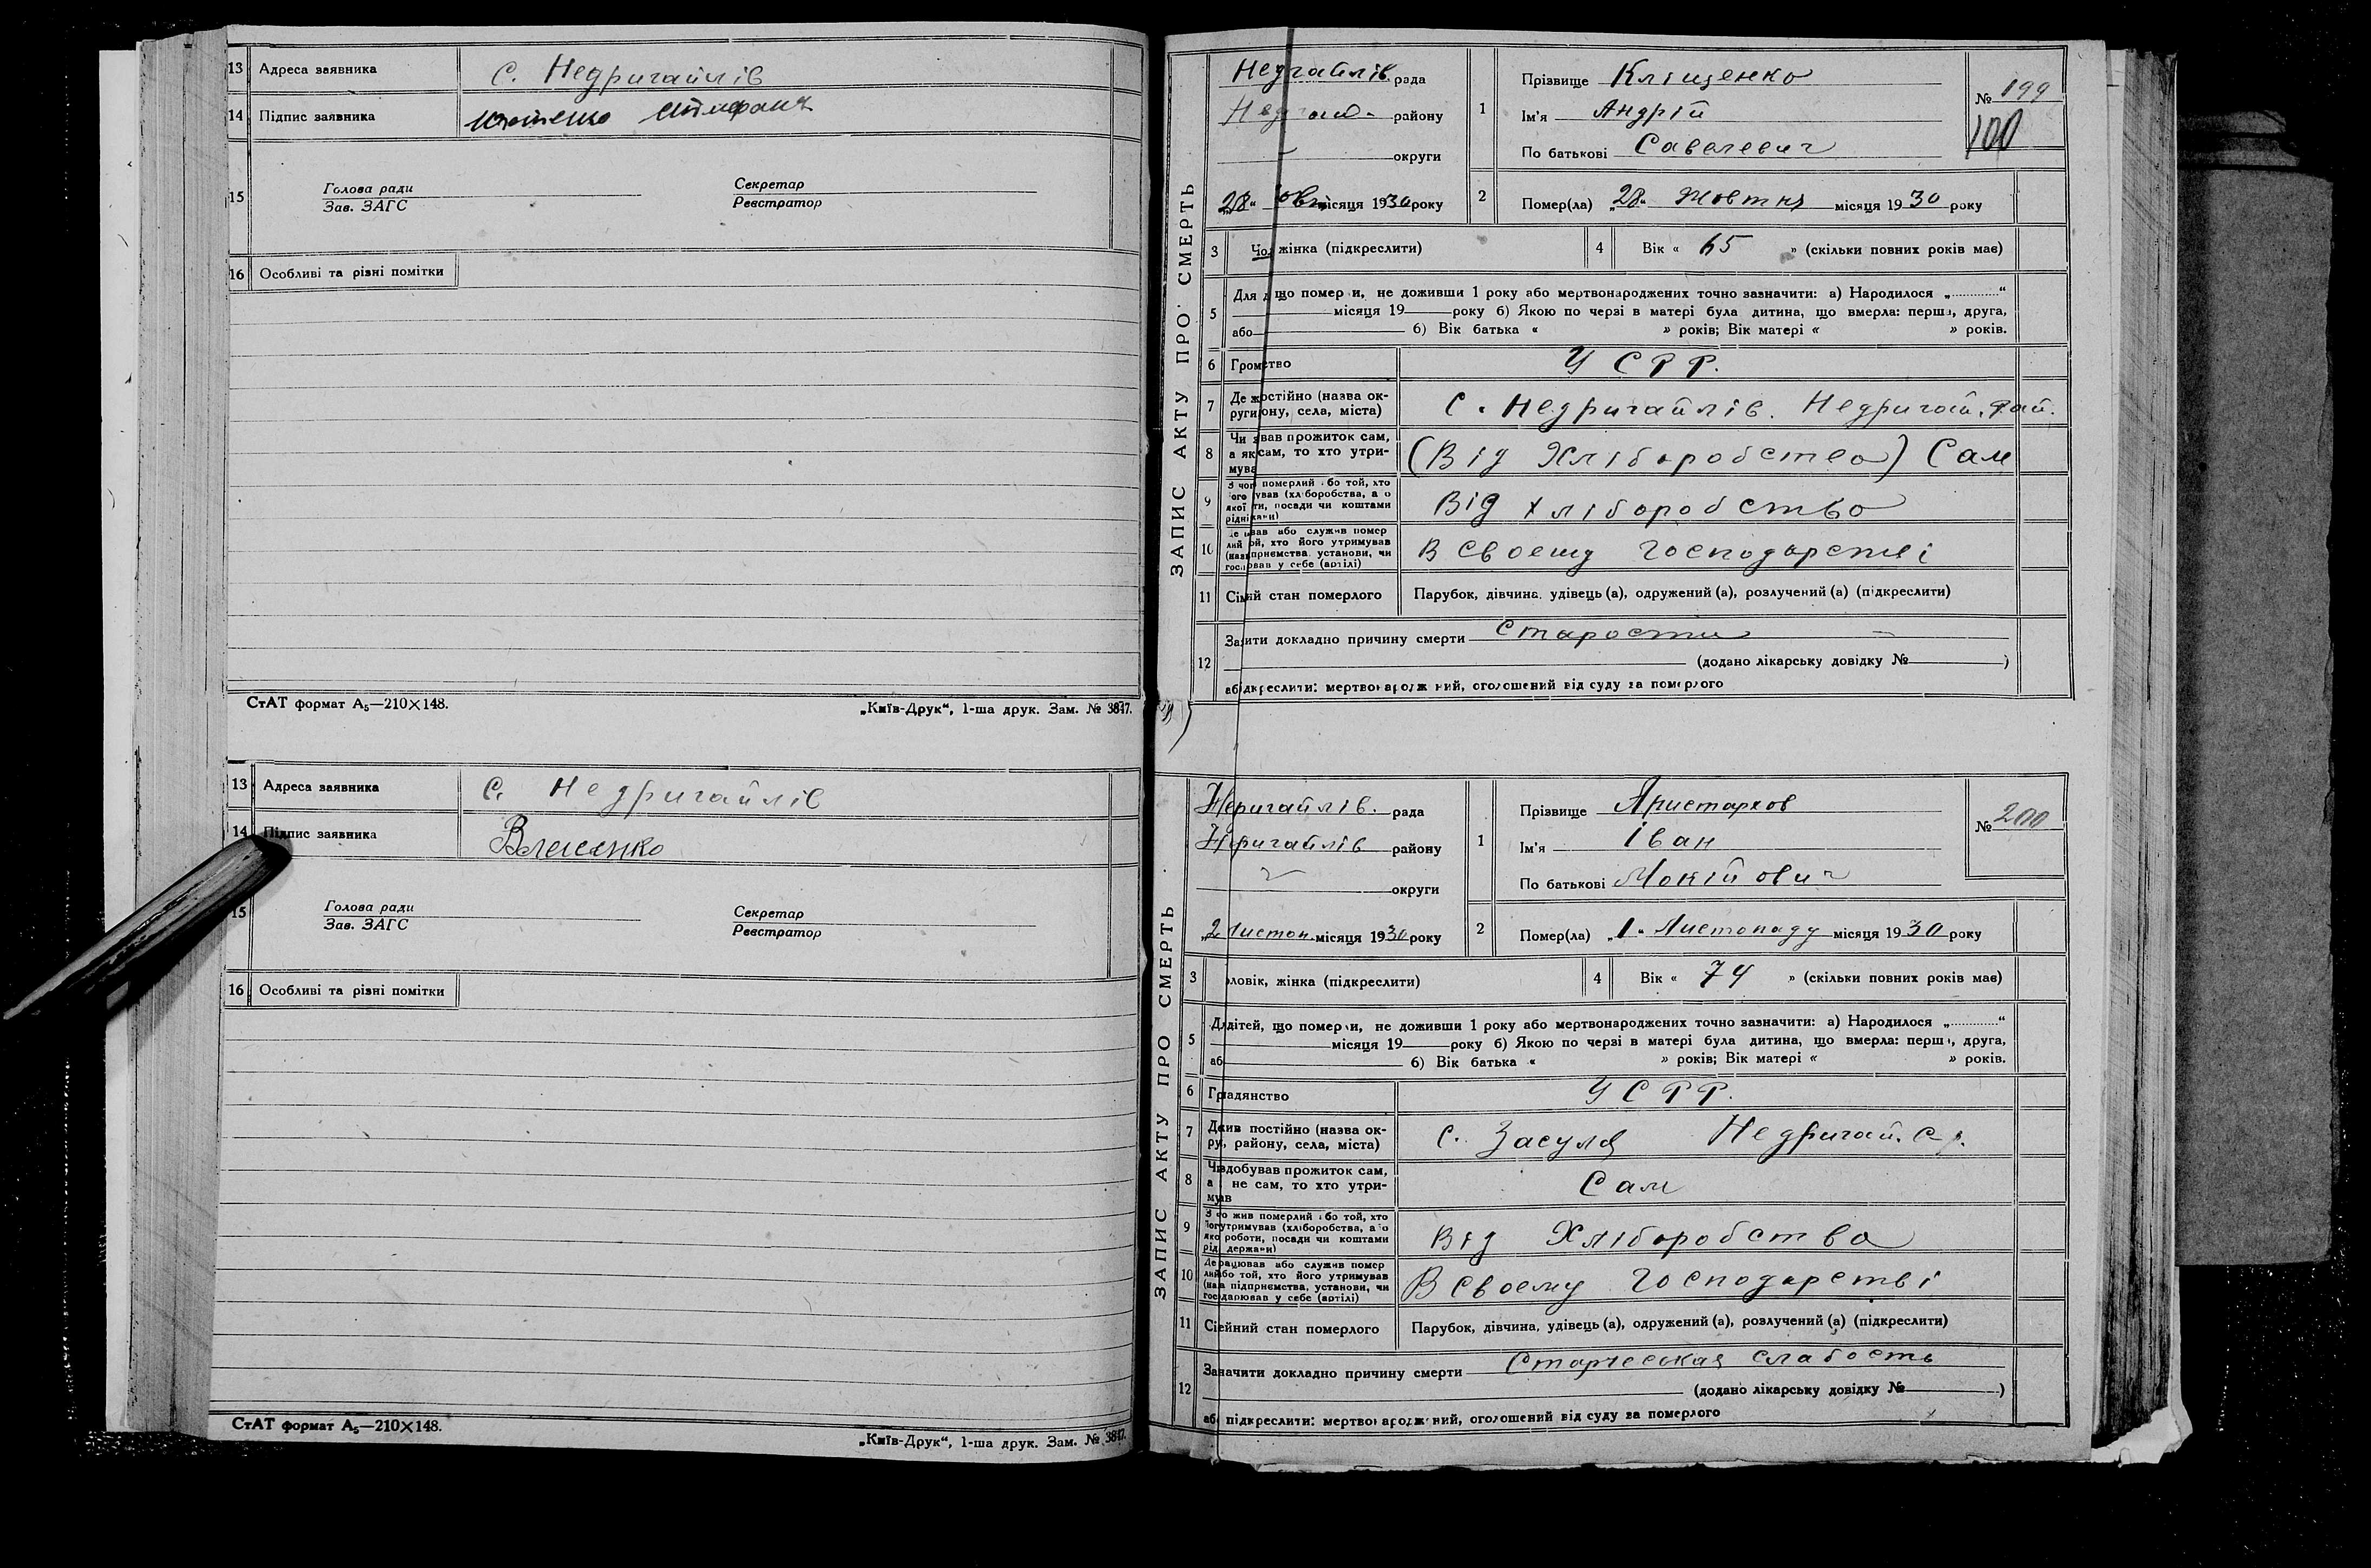 13 Адреса заявника С. Недригайлів
14 Підпис заявника
15 Голова ради Секретар
Зав. ЗАГС Реєстратор
16 Особливі та різні помітки
СтАТ формат А5—210×148. „Київ-Друк“, 1-ша друк. Зам. № 3847.
13 Адреса заявника С. Недригайлів
14 Підпис заявника
15 Голова ради Секретар
Зав. ЗАГС Реєстратор
16 Особливі та різні помітки
СтАТ формат А5—210×148. „Київ-Друк“, 1-ша друк. Зам. № 3847.
ЗАПИС АКТУ ПРО СМЕРТЬ
рада
району
округи
„28“ місяця 1930 року
1 Прізвище Кліщенко
Ім'я Андрій
По батькові Савелевич
№ 199
100
2 Помер(ла) „28“ Жовтня місяця 1930 року
3 жінка (підкреслити) 4 Вік « 65 » (скільки повних років має)
5 Для що помер и, не доживши 1 року або мертвонароджених точно зазначити: а) Народилося „............“
місяця 19 року б) Якою по черзі в матері була дитина, що вмерла: перша, друга,
або б) Вік батька « » років; Вік матері « » років.
6 У С Р Р.
7 Де постійно (назва ок-
руги ону, села, міста) С. Недригайлів. Недригай. Рай.
8 Чи вав прожиток сам,
а як сам, то хто утри-
мува (Від Хліборобства) Сам
9 померлий або той, хто
ував (хліборобства, а о
якої ти, посади чи коштами
рідні Від хліборобство
10 вав або служив помер
лий ой, хто його утримував
(назв приємства, установи, чи
госп рював у себе (артілі) В своему господарстві
11 Сі ний стан померлого Парубок, дівчина, удівець (а), одружений (а), розлучений (а) (підкреслити)
12 За ити докладно причину смерти Старости
(додано лікарську довідку № )
аб ідкреслити: мертвонароджений, оголошений від суду за померлого
ЗАПИС АКТУ ПРО СМЕРТЬ
Неригайлів. рада
Неригайлів району
округи
„2 Листоп. місяця 1930 року
1 Прізвище Аристархов
Ім'я Іван
По батькові Мокійович
№ 200
2 Помер(ла) „1“ Листопаду місяця 1930 року
3 ловік, жінка (підкреслити) 4 Вік « 74 » (скільки повних років має)
5 Д дітей, що помер и, не доживши 1 року або мертвонароджених точно зазначити: а) Народилося „............“
місяця 19 року б) Якою по черзі в матері була дитина, що вмерла: перша, друга,
аб б) Вік батька « » років; Вік матері « » років.
6 Гр адянство У С Р Р.
7 Д жив постійно (назва ок-
ру , району, села, міста) С. Засулля Недригай.
8 Чи здобував прожиток сам,
а не сам, то хто утри-
мував Сам
9 З го жив померлий або той, хто
утримував (хліборобства, або
яко роботи, посади чи коштами
рід держави) Від Хліборобства
10 Де рацював або служив помер
лий бо той, хто його утримував
(на а підприємства, установи, чи
гос дарював у себе (артілі) В своему господарстві
11 Сі ейний стан померлого Парубок, дівчина, удівець (а), одружений (а), розлучений (а) (підкреслити)
12 За начити докладно причину смерти Старческая слабость
(додано лікарську довідку № )
аб підкреслити: мертвонароджений, оголошений від суду за померлого